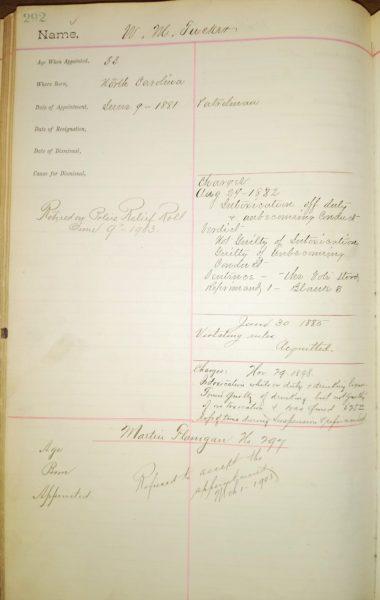 292
Name, W. M. Tucker
Age When Appointed, 33
Where Born, North Carolina
Date of Appointment, June 9 - 1881 Patrolman
Date of Resignation,
Date of Dismissal,
Cause for Dismissal,
Retired on Police Relief Roll
June 9th 1903.
Charges
Aug 29 - 1882
Intoxication off duty
& unbecoming Conduct
Verdict
Not Guilty of Intoxication
Guilty of Unbecoming
Conduct
Sentence - The Vote Stood
Reprimand 1 - Blank 5
June 30 1885
Violating rules
Acquitted.
Charges: Nov 29. 1898.
Intoxication while on duty & drinking liquor
Found guilty of drinking but not guilty
of intoxication & was fined
loss of time during suspension & reprimanded
Martin Flanigan No 297
Age
Born
Appointed
Refused to accept the
appointment
Mch 1 - 1905